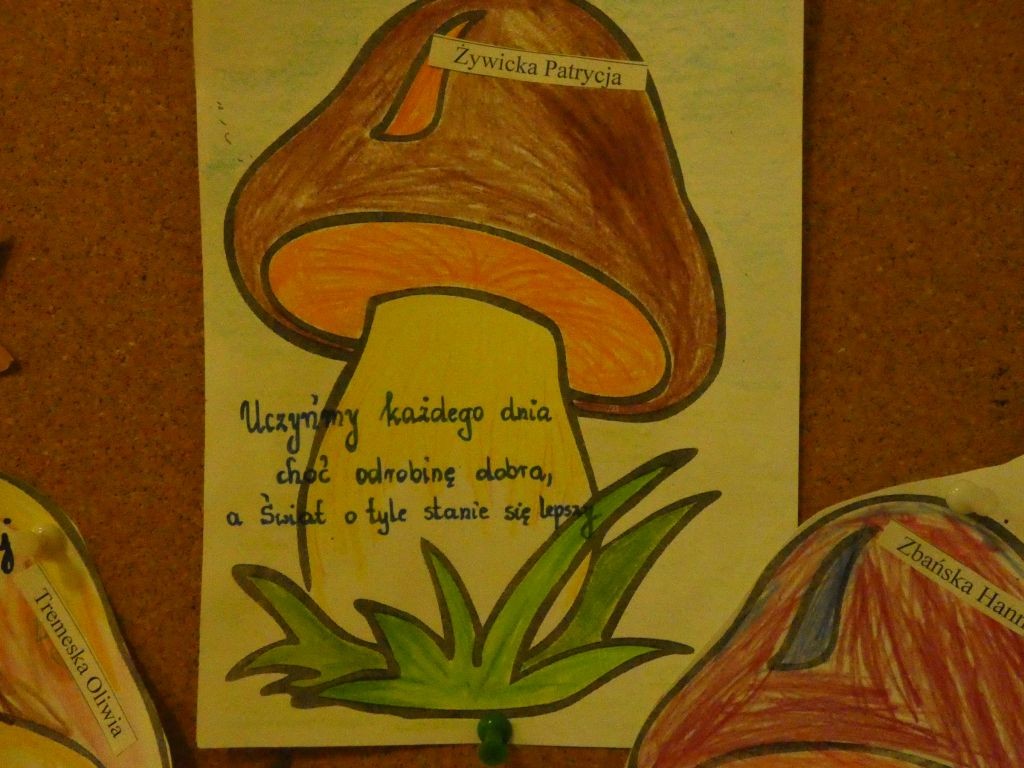 Żywicka Patrycja
Uczyńmy każdego dnia
choć odrobinę dobra,
a Świat o tyle stanie się lepszy
j
Tremeska Oliwia
Zbańska Hann